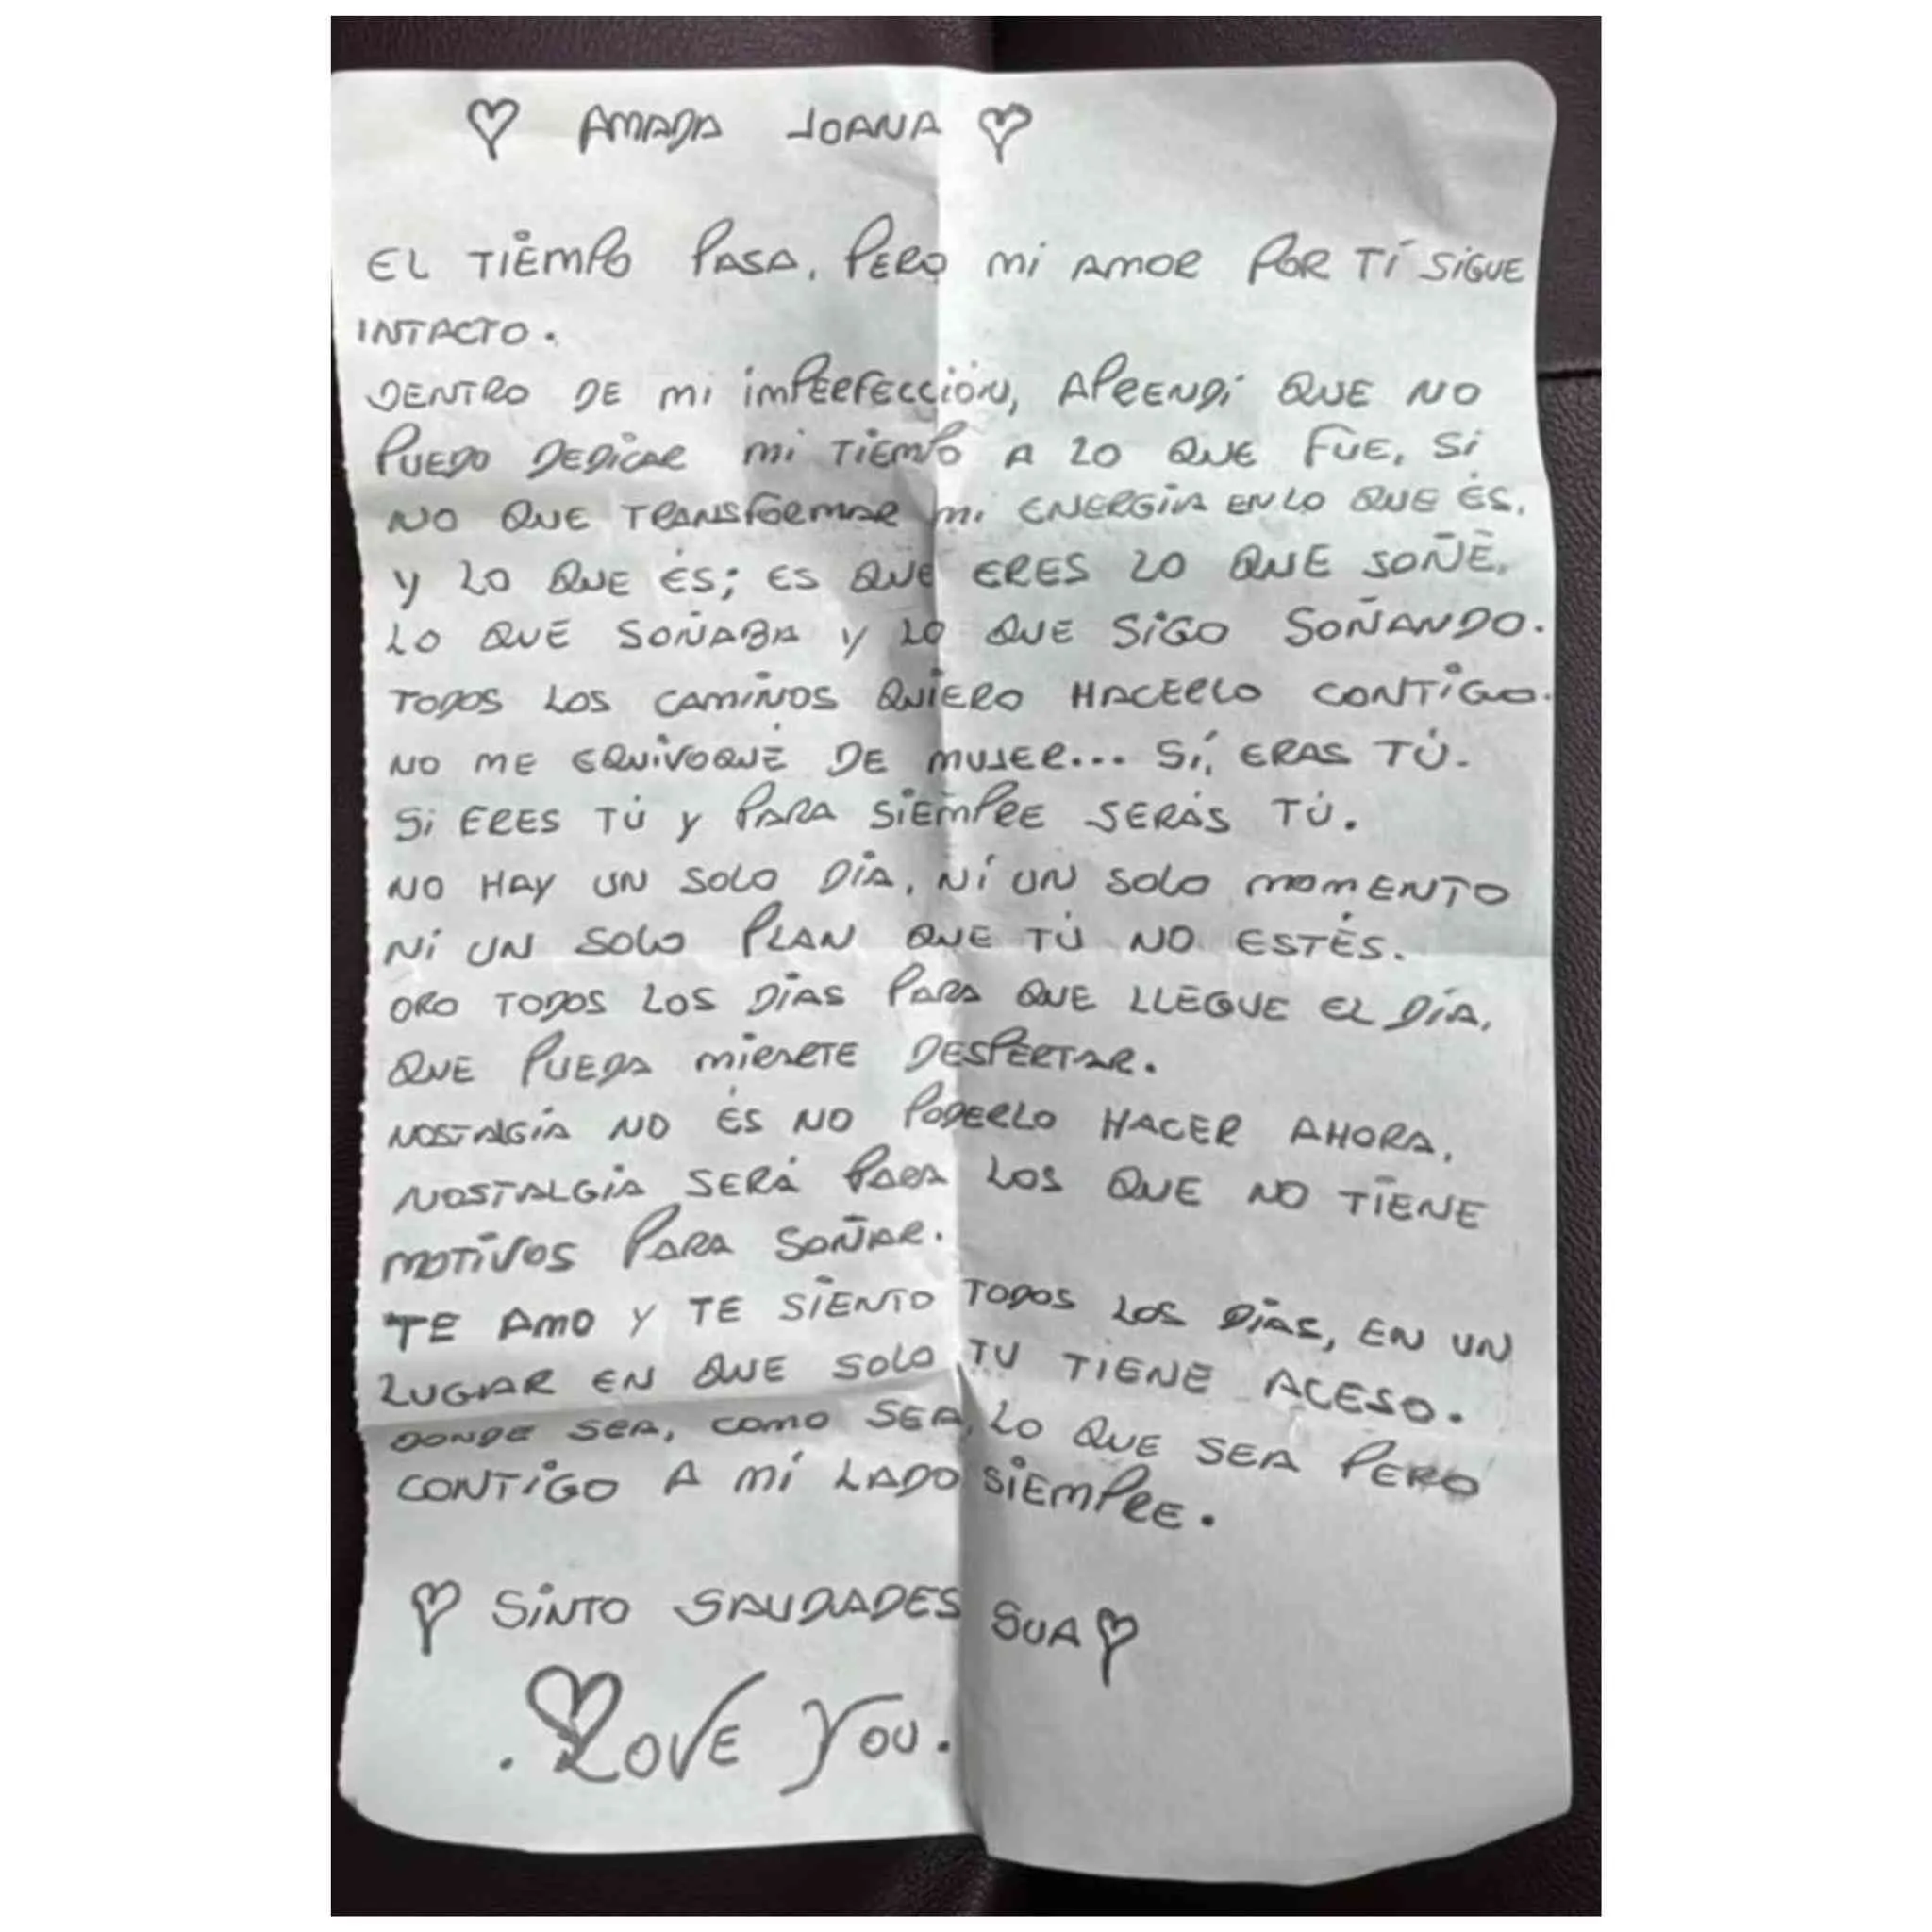 ♡ AMADA JOANA ♡
EL TIEMPO PASA, PERO MI AMOR POR TÍ SIGUE
INTACTO.
DENTRO DE MI IMPERFECCIÓN, APRENDÍ QUE NO
PUEDO DEDICAR MI TIEMPO A LO QUE FUE, SI
NO QUE TRANSFORMAR MI ENERGÍA EN LO QUE ÉS.
Y LO QUE ÉS; ES QUE ERES LO QUE SOÑÉ,
LO QUE SOÑABA Y LO QUE SIGO SOÑANDO.
TODOS LOS CAMINOS QUIERO HACERLO CONTIGO.
NO ME EQUIVOQUÉ DE MUJER... SÍ, ERAS TÚ.
SI ERES TÚ Y PARA SIEMPRE SERÁS TÚ.
NO HAY UN SOLO DÍA, NÍ UN SOLO MOMENTO
NI UN SOLO PLAN QUE TÚ NO ESTÉS.
ORO TODOS LOS DÍAS PARA QUE LLEGUE EL DÍA,
QUE PUEDA MIRARTE DESPERTAR.
NOSTALGÍA NO ÉS NO PODERLO HACER AHORA,
NOSTALGIA SERÁ PARA LOS QUE NO TIENE
MOTIVOS PARA SOÑAR.
TE AMO Y TE SIENTO TODOS LOS DÍAS, EN UN
LUGAR EN QUE SOLO TU TIENE ACESO.
DONDE SEA, COMO SEA, LO QUE SEA PERO
CONTIGO A MÍ LADO SIEMPRE.
♡ SINTO SAUDADES SUA ♡
. LOVE YOU.